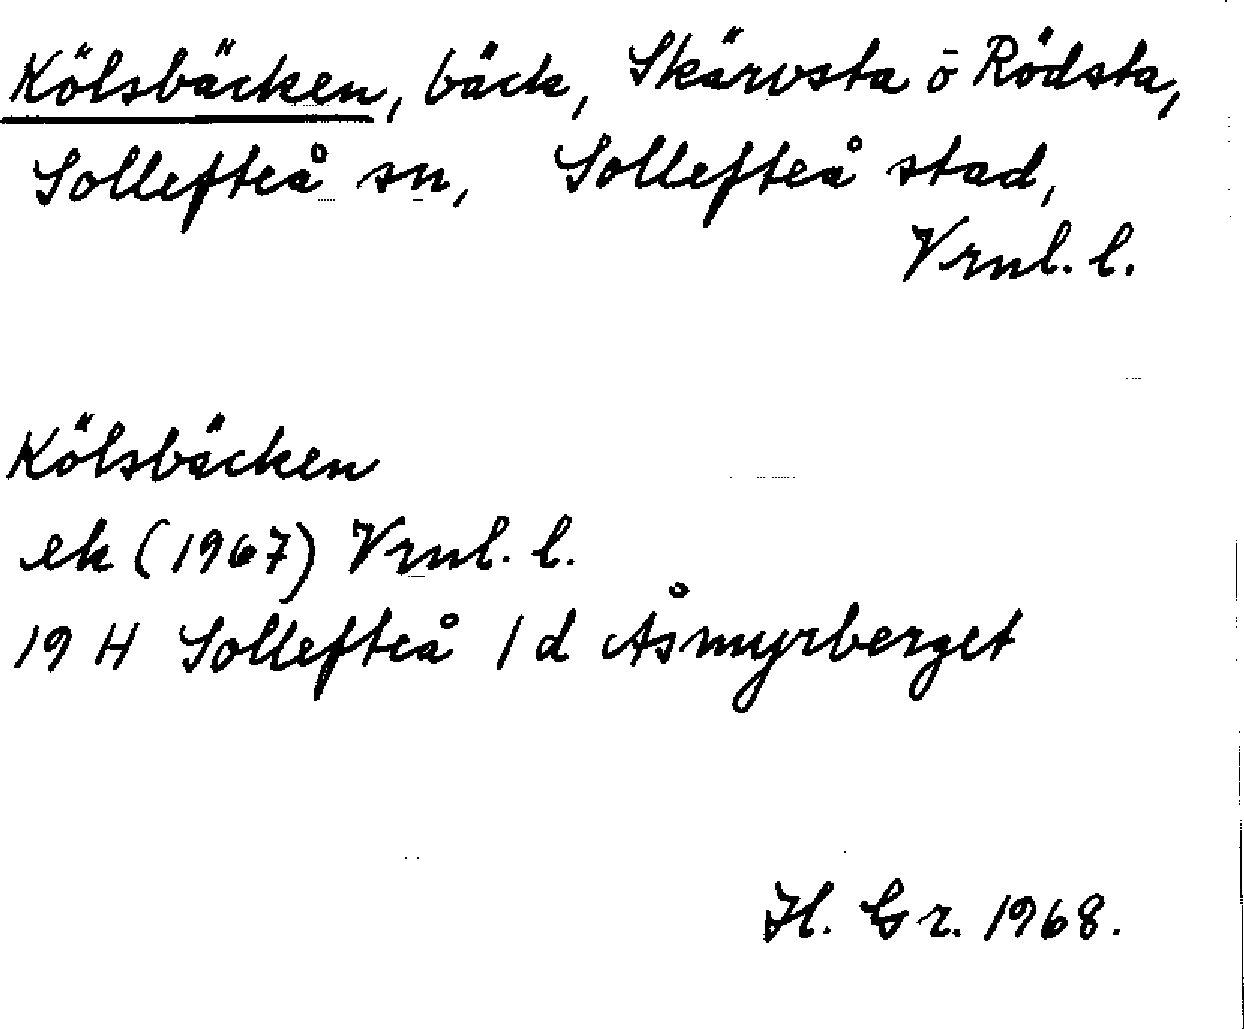 Kölsbäcken, bäck, Skärvsta o Rödsta,
Sollefteå sn, Sollefteå stad,
Vrnl. l.
Kölsbäcken
ek (1967) Vrnl. l.
19 H Sollefteå 1 d Åsmyrberget
H. Gr. 1968.